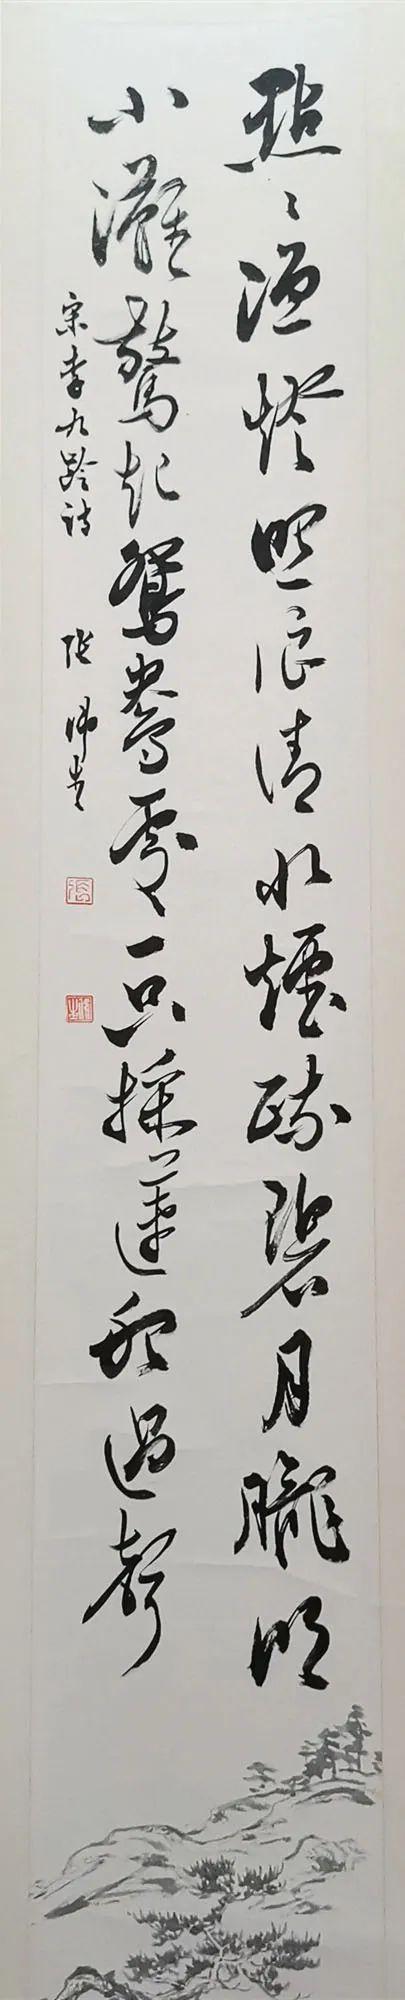 點々漁燈照浪清水煙疏碧月朧明
小灘驚起鴛鴦處一只採蓮船過聲
宋李九齡詩
張
張